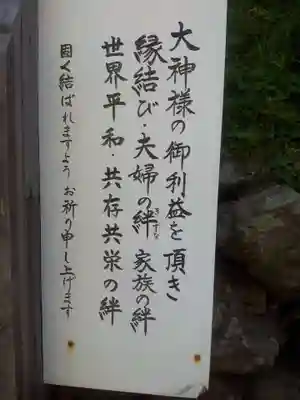 大神様の御利益を頂き
縁結び・夫婦の絆 家族の絆
世界平和・共存共栄の絆
固く結ばれますよう お祈り申し上げます